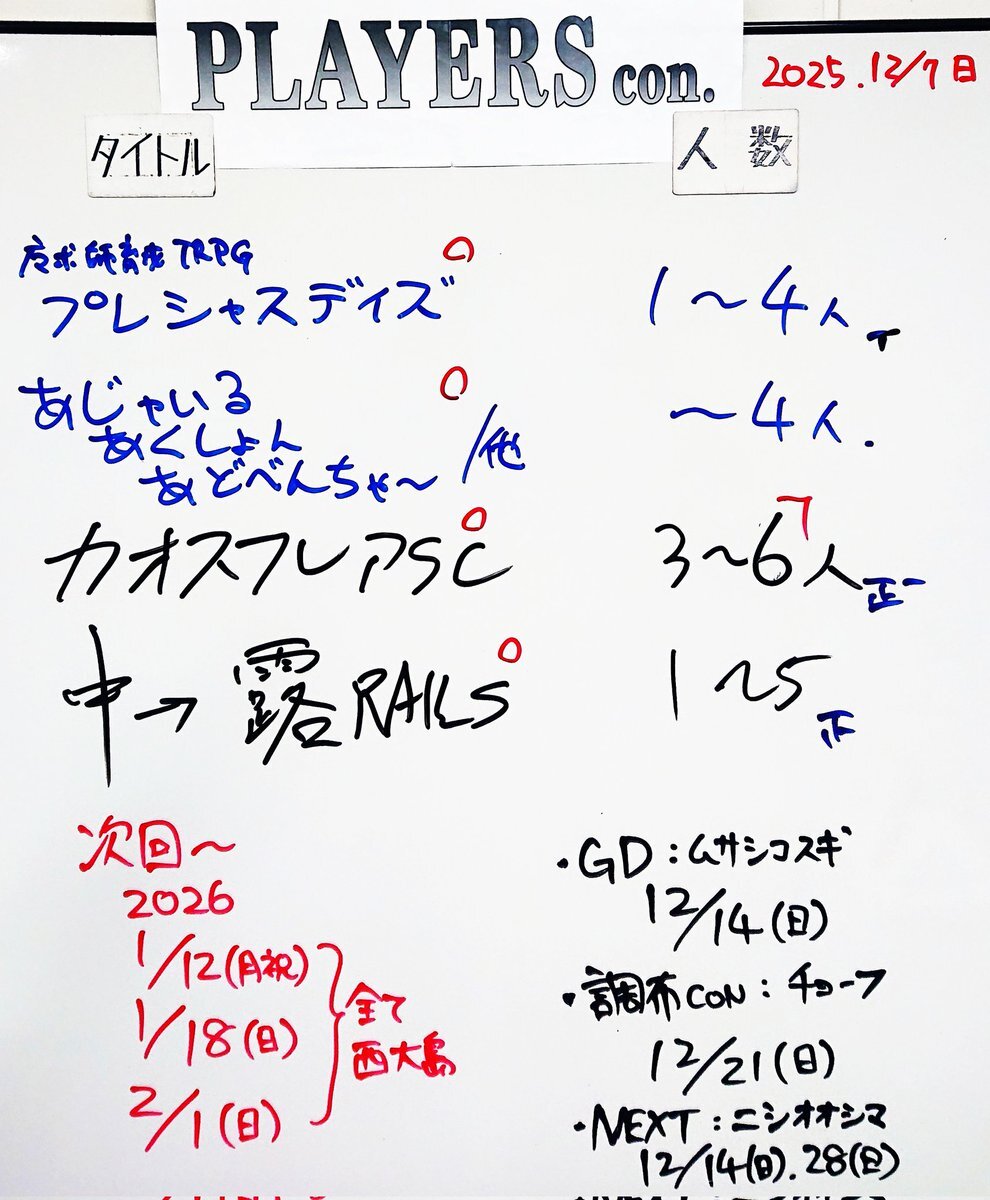 PLAYERS con.
2025.12/7日
タイトル
人数
育成TRPG
プレシャスデイズ
1〜4人
T
あじゃいる
あくしょん
あどべんちゃ〜
/他
〜4人.
カオスフレアSC
3〜6人
7
正一
中→露RAILS
1〜5
次回〜
2026
1/12(月祝)
1/18(日)
2/1(日)
全て
西大島
・GD:ムサシコスギ
12/14(日)
・調布CON:チョーフ
12/21(日)
・NEXT:ニシオオシマ
12/14(日).28(日)